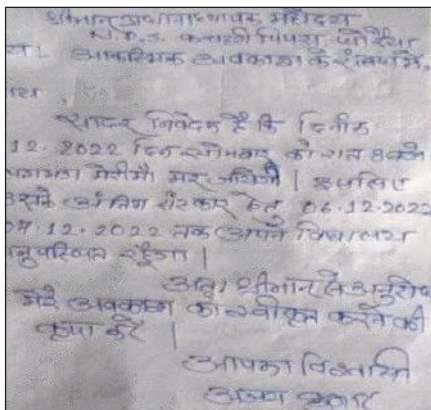 श्रीमान प्रधानाध्यापक महोदय
N.P.S. कचारी पिपरा, जोरैया
आकस्मिक अवकाश के संबंध में,
सादर निवेदन है कि दिनांक
12.2022 दिन सोमवार को रात 8 बजे
मेरी माँ मर जायेगी | इसलिए
उसके अंतिम संस्कार हेतु 06.12.2022
12.2022 तक अपने विद्यालय
रहूँगा |
अतः श्रीमान से अनुरोध
मेरे अवकाश को स्वीकृत करने की
कृपा करें |
आपका विश्वासी
अजय कुमार